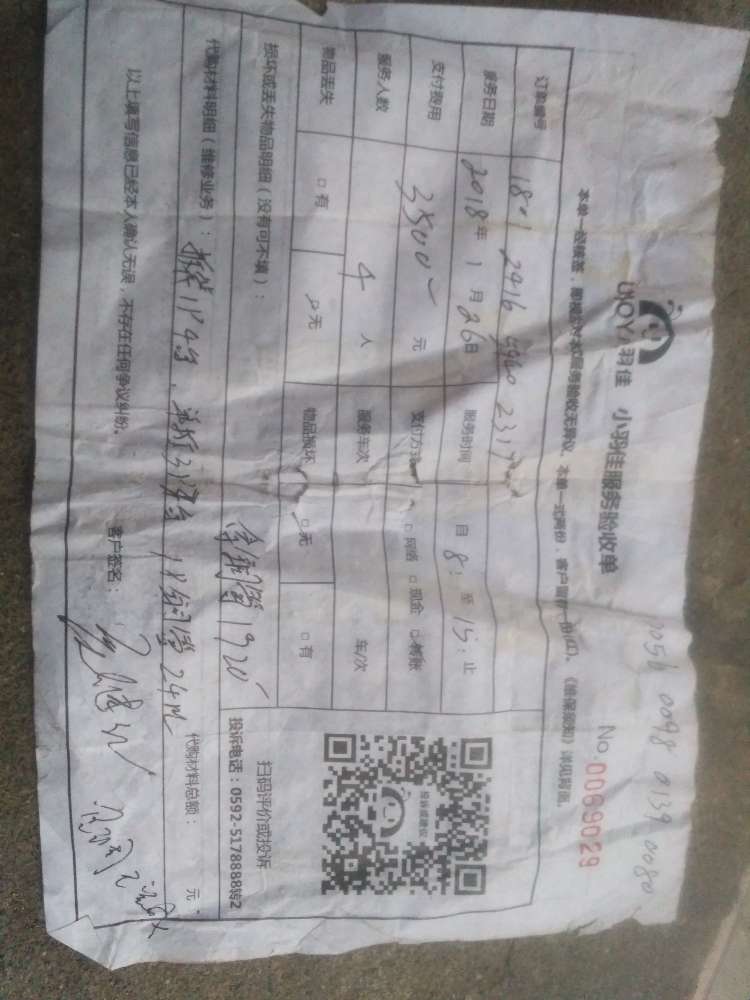 0054 0098 0139 0080
小羽佳 小羽佳服务验收单
No 0069029
本单一式两份，客户留存一份(红)。《维保须知》详见背面。
订单编号 1801 2416 5960 2317
服务日期 2018年1月26日 服务时间 自8：至15：止
支付费用 3500 元 支付方式 □网络 □现金 □转账
服务人数 4 人 服务车次 车/次
物品丢失 □有 □无 物品损坏 □无 □有
损坏或丢失物品明细（没有可不填）： 铜管1920
扫码评价或投诉
投诉电话：0592-5178888转2
代购材料明细（维修业务）： 拆装1P4台、 24M 代购材料总额： 元
以上填写信息已经本人确认无误，不存在任何争议纠纷。 客户签名：